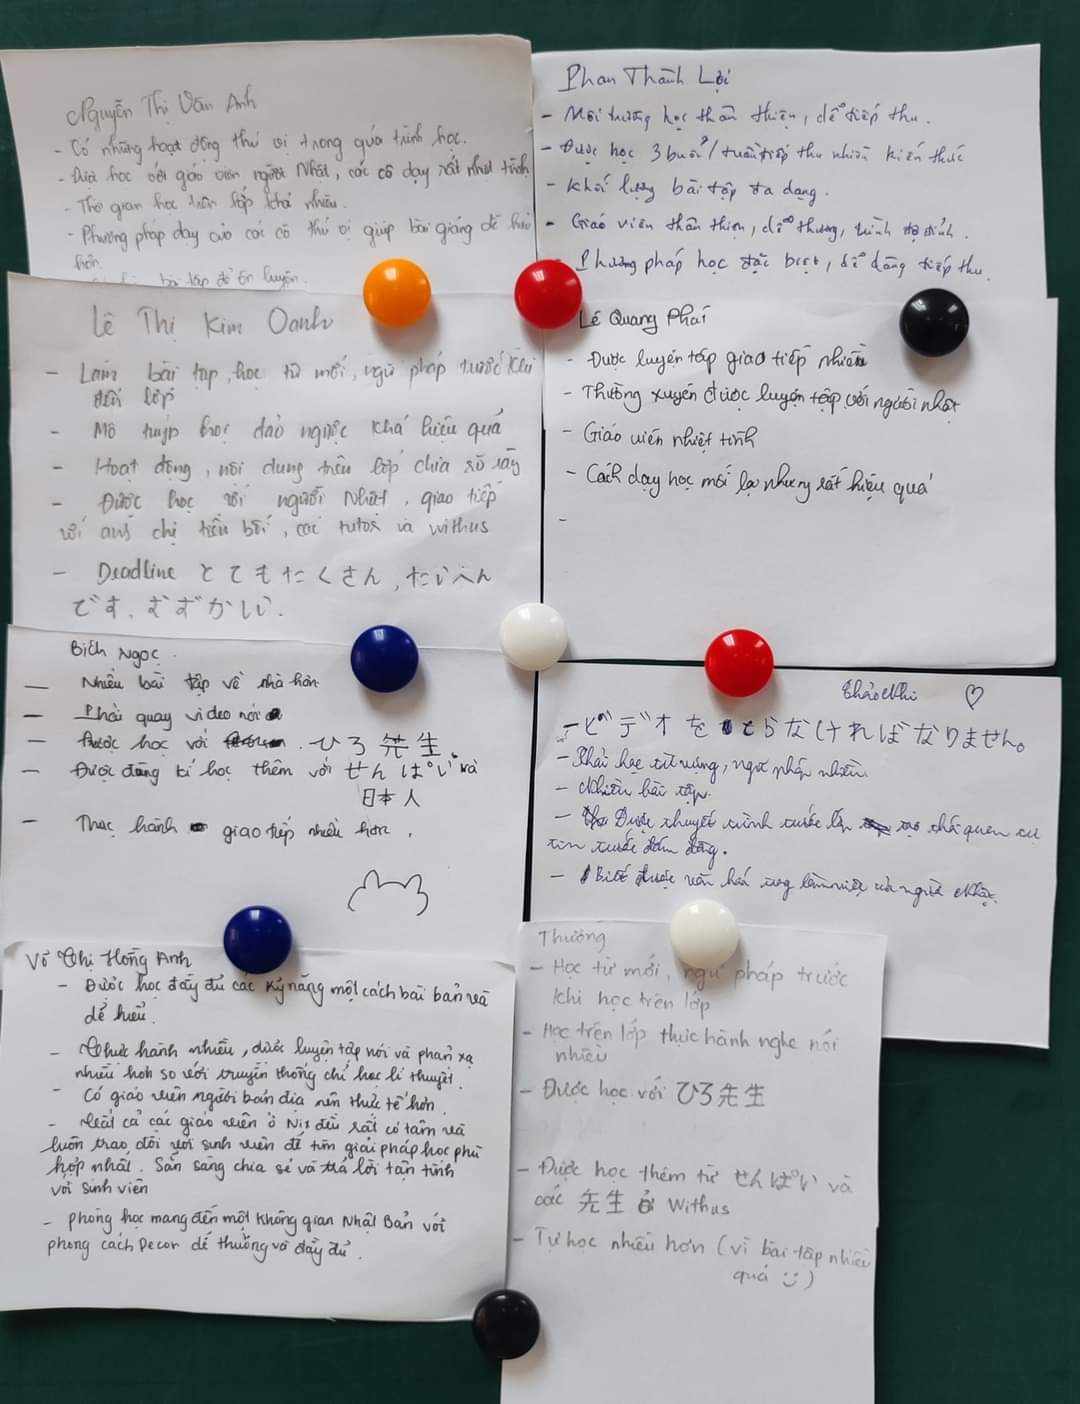 Nguyễn Thị Vân Anh
- Có những hoạt động thú vị trong quá trình học.
- Được học với giáo viên người Nhật, các cô dạy rất nhiệt tình
- Thời gian học trên lớp khá nhiều.
- Phương pháp dạy của các cô thú vị giúp bài giảng dễ hiểu
hơn.
bài tập để ôn luyện.
Phan Thành Lợi
- Môi trường học thân thiện, dễ tiếp thu.
- Được học 3 buổi/tuần tiếp thu nhiều kiến thức
- Khối lượng bài tập đa dạng.
- Giáo viên thân thiện, dễ thương,
Phương pháp học đặc biệt, dễ dàng tiếp thu.
Lê Thị Kim Oanh
- Làm bài tập, học từ mới, ngữ pháp trước khi
đến lớp
- Mô tuýp học đảo ngược khá hiệu quả
- Hoạt động, nội dung trên lớp chia rõ ràng
- Được học với người Nhật, giao tiếp
với anh chị tiền bối, các tutor và withus
- Deadline とてもたくさん, たいへん
です, むずかしい.
Lê Quang Phái
- Được luyện tập giao tiếp nhiều
- Thường xuyên được luyện tập với người nhật
- Giáo viên nhiệt tình
- Cách dạy học mới lạ nhưng rất hiệu quả
-
Bích Ngọc
— Nhiều bài tập về nhà hơn
— Phải quay video nói
— Được học với ひろ先生.
— Được đăng kí học thêm với せんぱい và
日本人
— Thực hành giao tiếp nhiều hơn.
Thảo Nhi ♡
- ビデオをとらなければなりません。
- Phải học từ vựng, ngữ pháp nhiều.
- Nhiều bài tập.
- Được thuyết trình trước lớp tạo thói quen tự
tin trước đám đông.
- Biết được văn hoá trong làm việc của người Nhật.
Võ Thị Hồng Anh
- Được học đầy đủ các kỹ năng một cách bài bản và
dễ hiểu.
- Thực hành nhiều, được luyện tập nói và phản xạ
nhiều hơn so với truyền thống chỉ học lí thuyết.
- Có giáo viên người bản địa nên thực tế hơn.
- Tất cả các giáo viên ở đều rất có tâm và
luôn trao đổi với sinh viên để tìm giải pháp học phù
hợp nhất. Sẵn sàng chia sẻ và trả lời tận tình
với sinh viên
- phòng học mang đến một không gian Nhật Bản với
phong cách Decor dễ thương và đầy đủ.
Thương
- Học từ mới, ngữ pháp trước
khi học trên lớp
- Học trên lớp thực hành nghe nói
nhiều
- Được học với ひろ先生
- Được học thêm từ せんぱい và
các 先生 ở Withus
- Tự học nhiều hơn (vì bài tập nhiều
quá :))